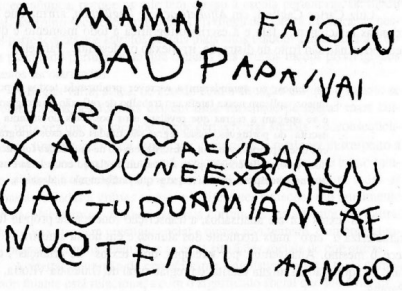 A MAMAI FAISCU
MIDAOPAPAIVAI
NAROSAEUBARUU
XAOUNEEXOAIEU
UAGUDOAMIAMAE
NUSTEIDU ARNOSO